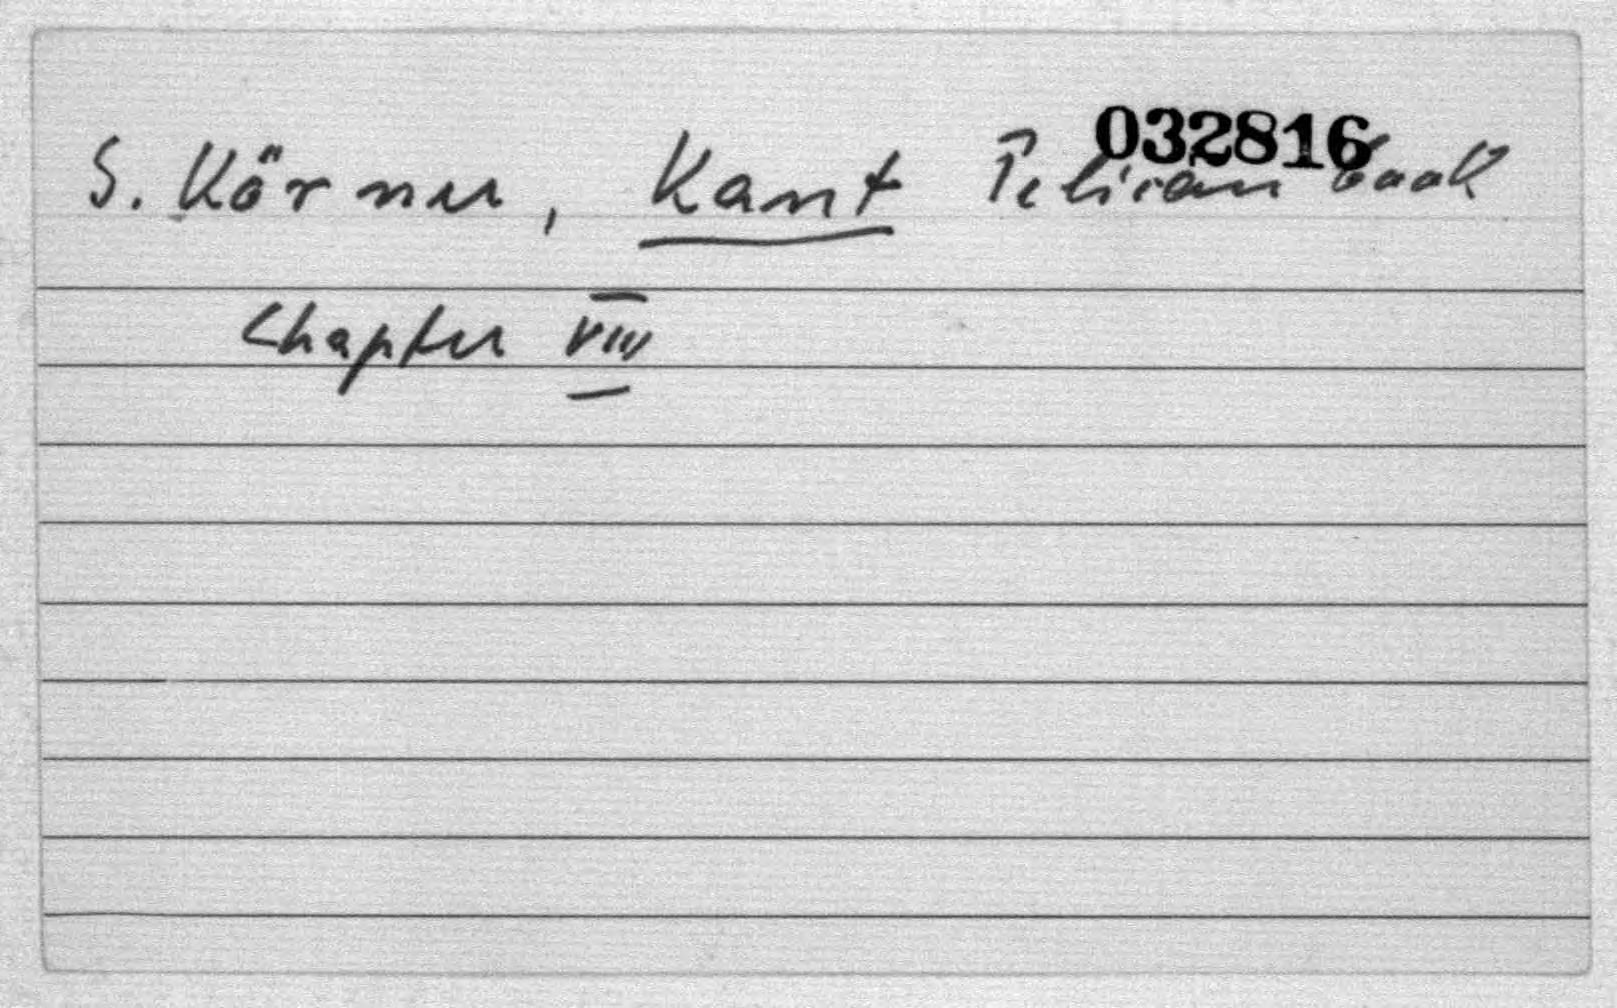 032816
S. Körner, Kant Pelican book
Chapter VIII